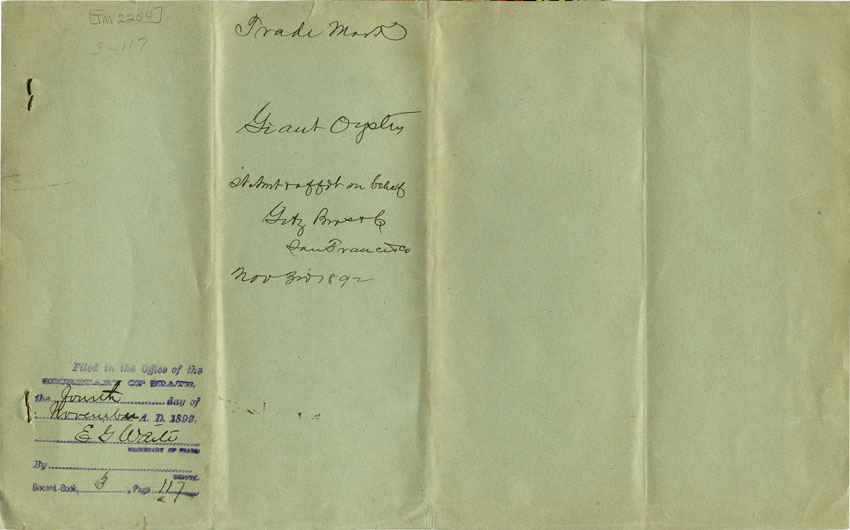 [TM2264]
3-117
Trade Mark
Giant Oysters
St.Amt & affdt on behalf
Getz Bros & Co
San Francisco
Nov 3rd 1892
Filed in the Office of the
SECRETARY OF STATE,
the fourth day of
November A. D. 1892.
E G Waite
SECRETARY OF STATE
By
DEPUTY.
Record Book, 3, Page 117